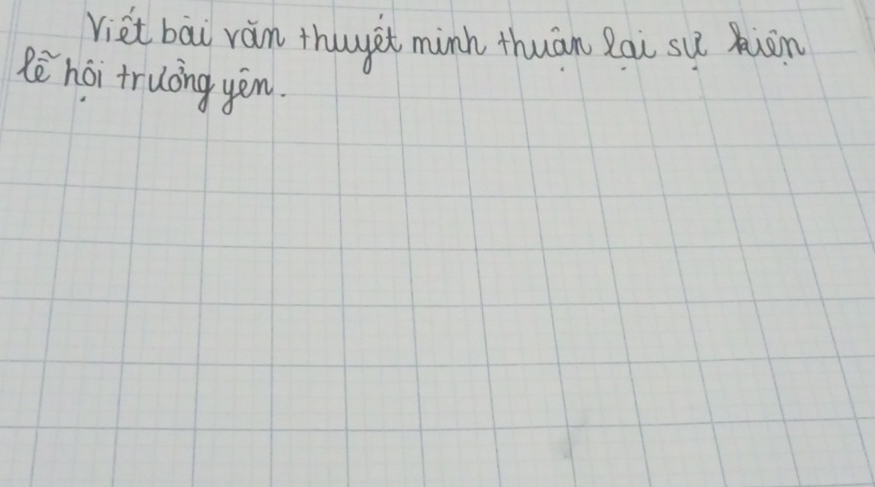 Viết bài văn thuyết minh thuận lại sự kiện
lễ hội trường yên.